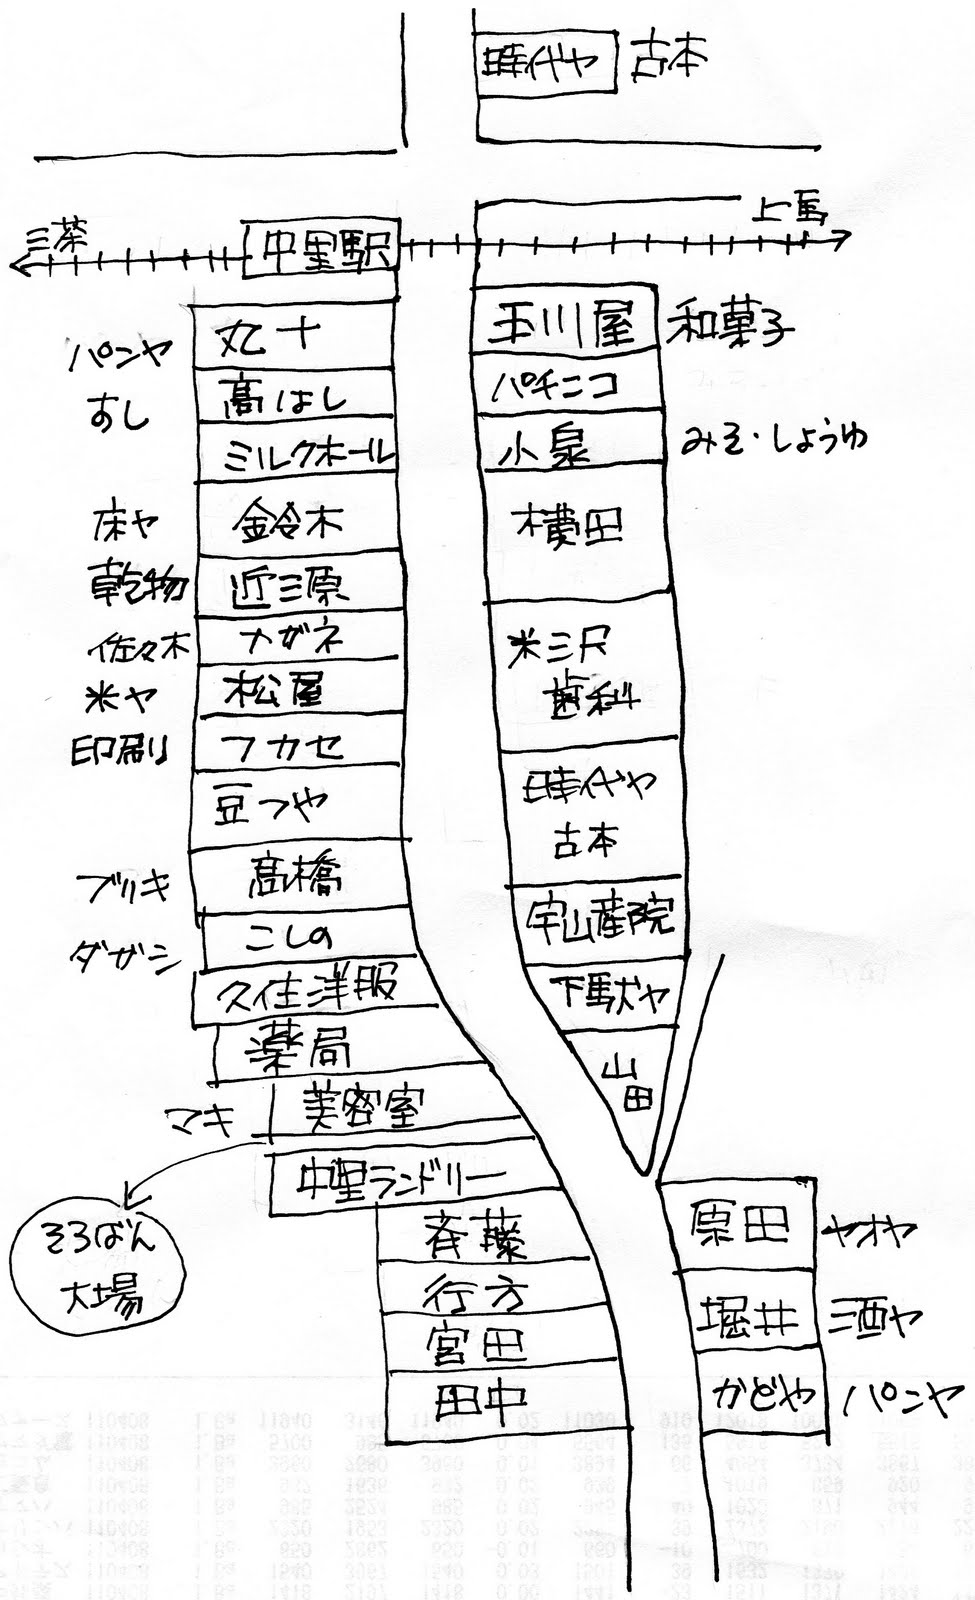 時代ヤ 古本
三茶
中里駅
上馬
パンヤ 丸十
すし 高はし
ミルクホール
床ヤ 金鈴木
乾物 近三原
佐々木 メガネ
米ヤ 松屋
印刷 フカセ
豆つや
ブリキ 高橋
ダガシ こしの
久住洋服
薬局
マキ 美容室
中里ランドリー
そろばん
大場
斉藤
行方
宮田
田中
玉川屋 和菓子
パチンコ
小泉 みそ・しょうゆ
横田
米三沢
歯科
時代ヤ
古本
宇山産院
下駄ヤ
山田
原田 ヤオヤ
堀井 酒ヤ
かどや パンヤ